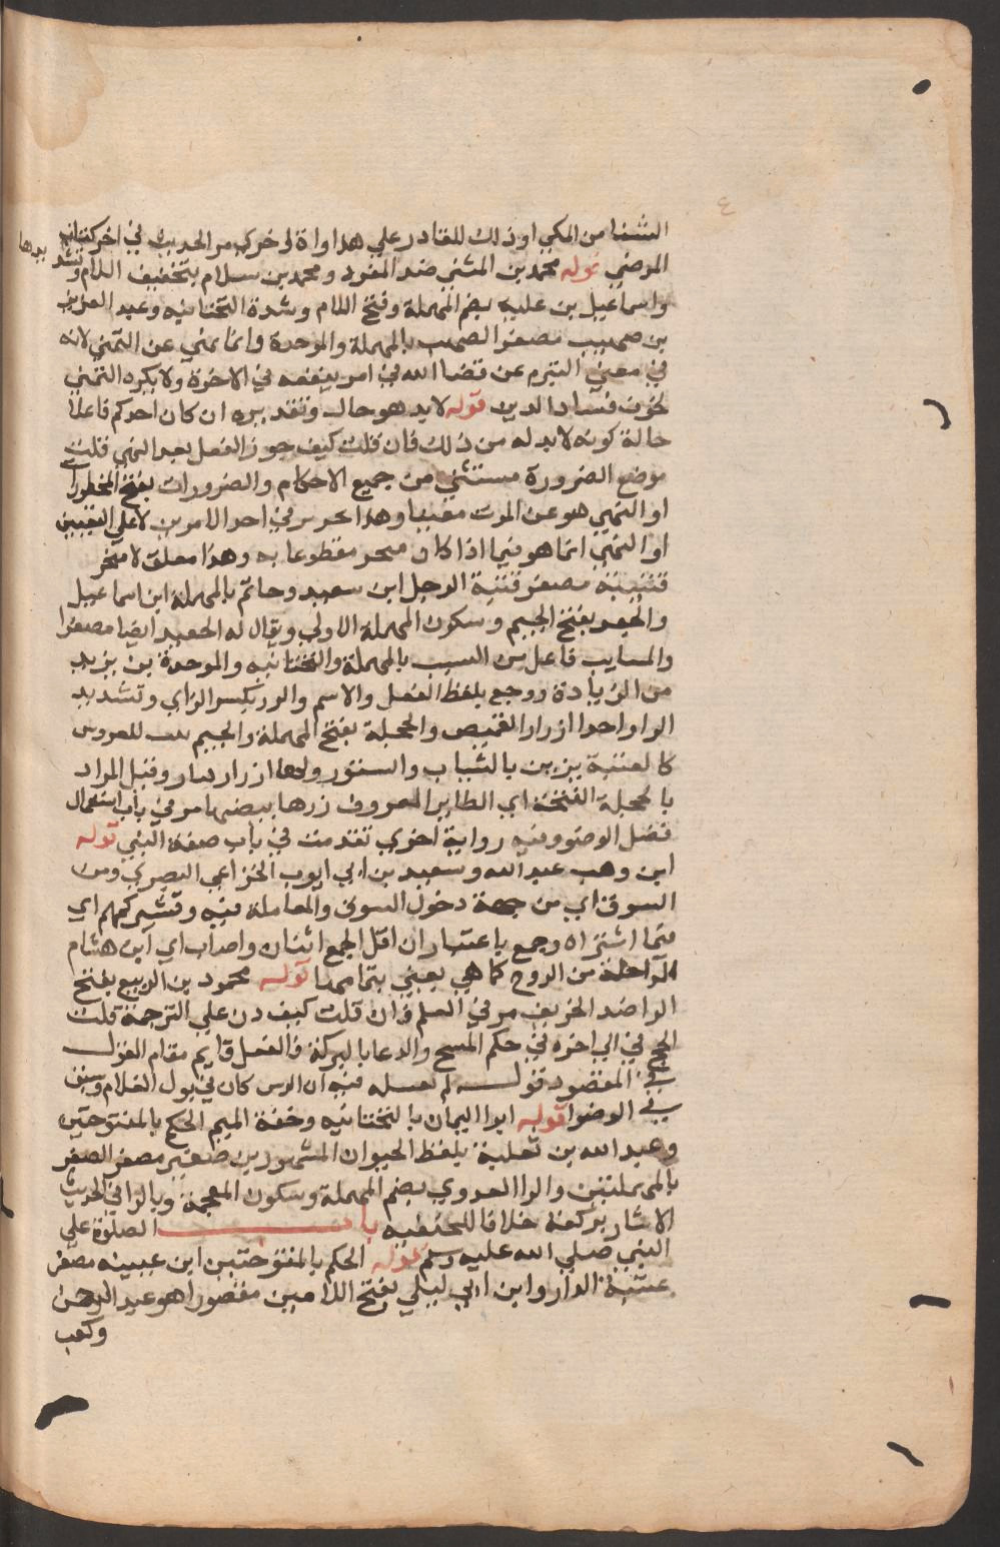 ٤
الشفا من المكي او ذلك للقادر على مداواة لاخرى مر الحديث في اخر كتاب
المرضى قوله محمد بن المثنى ضد المفرد ومحمد بن سلام بتخفيف اللام وتشد يدها
واسماعيل بن علية بضم المهملة وفتح اللام وشدة التحتانيه وعبد العزيز
بن صهيب مصغر الصهب بالمهملة والموحدة وانما نهي عن التمني لانه
في معنى التبرم عن قضا الله في امر ينفعه في الاخرة ولا يكره التمني
لخوف فساد الدين قوله لا بد هو حال وتقديره ان كان احدكم فاعلا
حالة كونه لا بد له من ذلك فان قلت كيف جوز الفعل بعد النهي قلت
موضع الضرورة مستثنى من جميع الاحكام والضرورات بفتح المحظورات
او النهي هو عن الموت معينا وهذا في احد الامرين لا على التعيين
او النهي انما هو فيما اذا كان منجز مقطوعا به وهذا معلق لا منجز
قتيبة مصغر قتبة الرحل ابن سعيد وحاتم بالمهملة ابن اسماعيل
والجعد بفتح الجيم وسكون المهملة الاولى ويقال له الجعيد ايضا مصغرا
والسايب فاعل من السيب بالمهملة والتحتانيه والموحدة بن يزيد
من الزيادة ووجع بلفظ الفعل والاسم والزر بكسر الزاي وتشديد
الرا واحد ازرار القميص والحجلة بفتح المهملة والجيم بيت للعروس
كالقبة يزين بالثياب والستور ولها ازرار كبار وقيل المراد
بالحجلة القبجة اي الطاير المعروف زرها بيضها مر في باب استعمال
فضل الوضو وفيه رواية اخرى تقدمت في باب صفة النبي قوله
ابن وهب عبد الله وسعيد بن ابي ايوب الخزاعي البصري ومن
السوق اي من جهة دخول السوق والمعاملة فيه وتشركهم اي
فيما اشتراه وجمع باعتبار ان اقل الجمع اثنان واصاب اي ابن هشام
الراحلة من الروح كما هي يعني بتمامها قوله محمود بن الربيع بفتح
الرا ضد الخريف مر في العلم فان قلت كيف دل على الترجمة قلت
المج في الى اخره في حكم المسح والدعا بالبركة فالفعل قايم مقام القول
في المقصود قوله لم يغسله فيه ان الرش كان في بول الغلام وسبق
في الوضوا قوله ابوا اليمان بالتحتانيه وخفة الميم الحكم بالمفتوحتين
وعبد الله بن ثعلبة بلفظ الحيوان المشهور بن صغير مصغر الصغر
بالمهملتين والرا العدوي بضم المهملة وسكون المعجمة وبالرا في الحديث
الايتار بركعة خلافا للحنفيه باب الصلوة على
النبي صلى الله عليه وسلم قوله الحكم بالمفتوحتين ابن عيينه مصغر
عتبة الدار وابن ابي ليلى بفتح اللامين مقصورا هو عبد الرحمن
وكعب